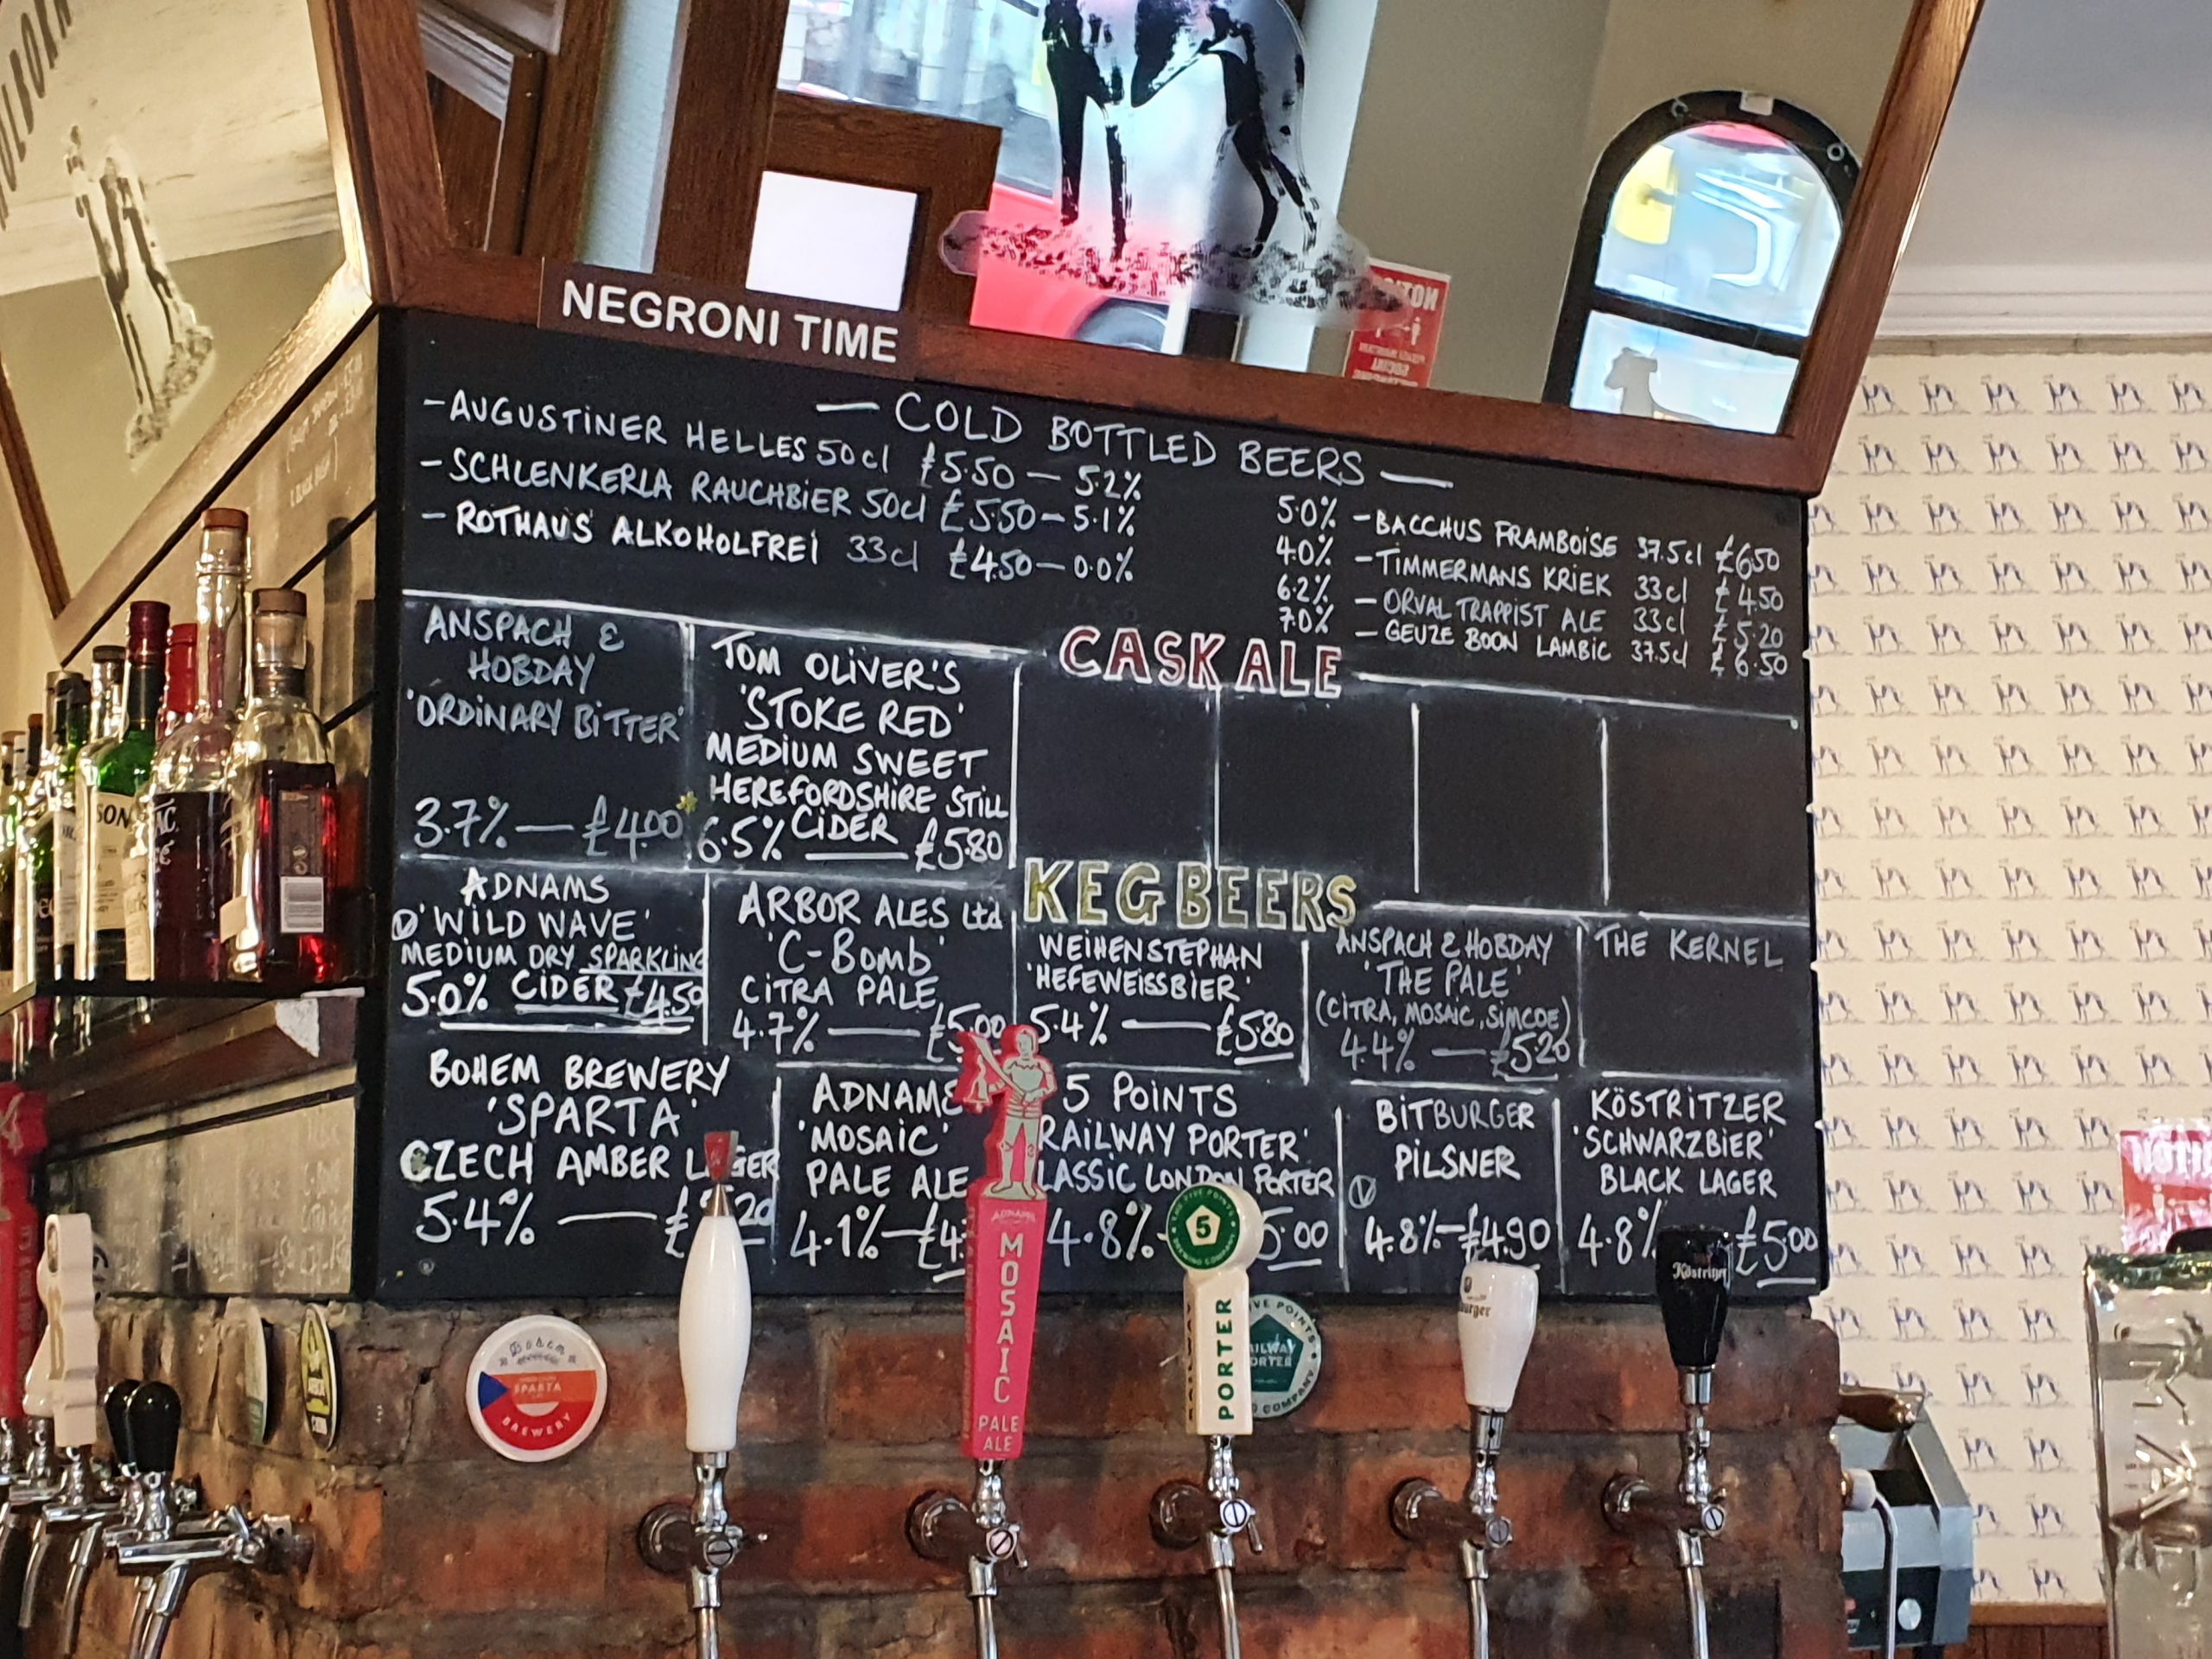 NEGRONI TIME
— COLD BOTTLED BEERS —
-AUGUSTINER HELLES 50cl £5.50 — 5.2%
-SCHLENKERLA RAUCHBIER 50cl £5.50 - 5.1%
-ROTHAUS ALKOHOLFREI 33cl £4.50 — 0.0%
5.0% -BACCHUS FRAMBOISE 37.5cl £6.50
4.0% -TIMMERMANS KRIEK 33cl £4.50
6.2% -ORVAL TRAPPIST ALE 33cl £5.20
7.0% -GEUZE BOON LAMBIC 37.5cl £6.50
CASK ALE
ANSPACH &
HOBDAY
'ORDINARY BITTER'
3.7% — £4.00
TOM OLIVER'S
'STOKE RED'
MEDIUM SWEET
HEREFORDSHIRE STILL
CIDER
6.5% — £5.80
KEG BEERS
ADNAMS
V 'WILD WAVE'
MEDIUM DRY SPARKLING
5.0% CIDER £4.50
ARBOR ALES Ltd
'C-BOMB'
CITRA PALE
4.7% — £5.00
WEIHENSTEPHAN
'HEFEWEISSBIER'
5.4% — £5.80
ANSPACH & HOBDAY
'THE PALE'
(CITRA, MOSAIC, SIMCOE)
4.4% — £5.20
THE KERNEL
BOHEM BREWERY
'SPARTA'
CZECH AMBER L GER
5.4% — £ 20
ADNAMS
'MOSAIC'
PALE ALE
4.1% — £4.
5 POINTS
RAILWAY PORTER'
LASSIC LONDON PORTER
4.8% - 5.00
BITBURGER
PILSNER
V
4.8% - £4.90
KÖSTRITZER
'SCHWARZBIER'
BLACK LAGER
4.8% £5.00
ADNAMS
MOSAIC
PALE
ALE
5
PORTER
Köstritzer
SPARTA
BREWERY